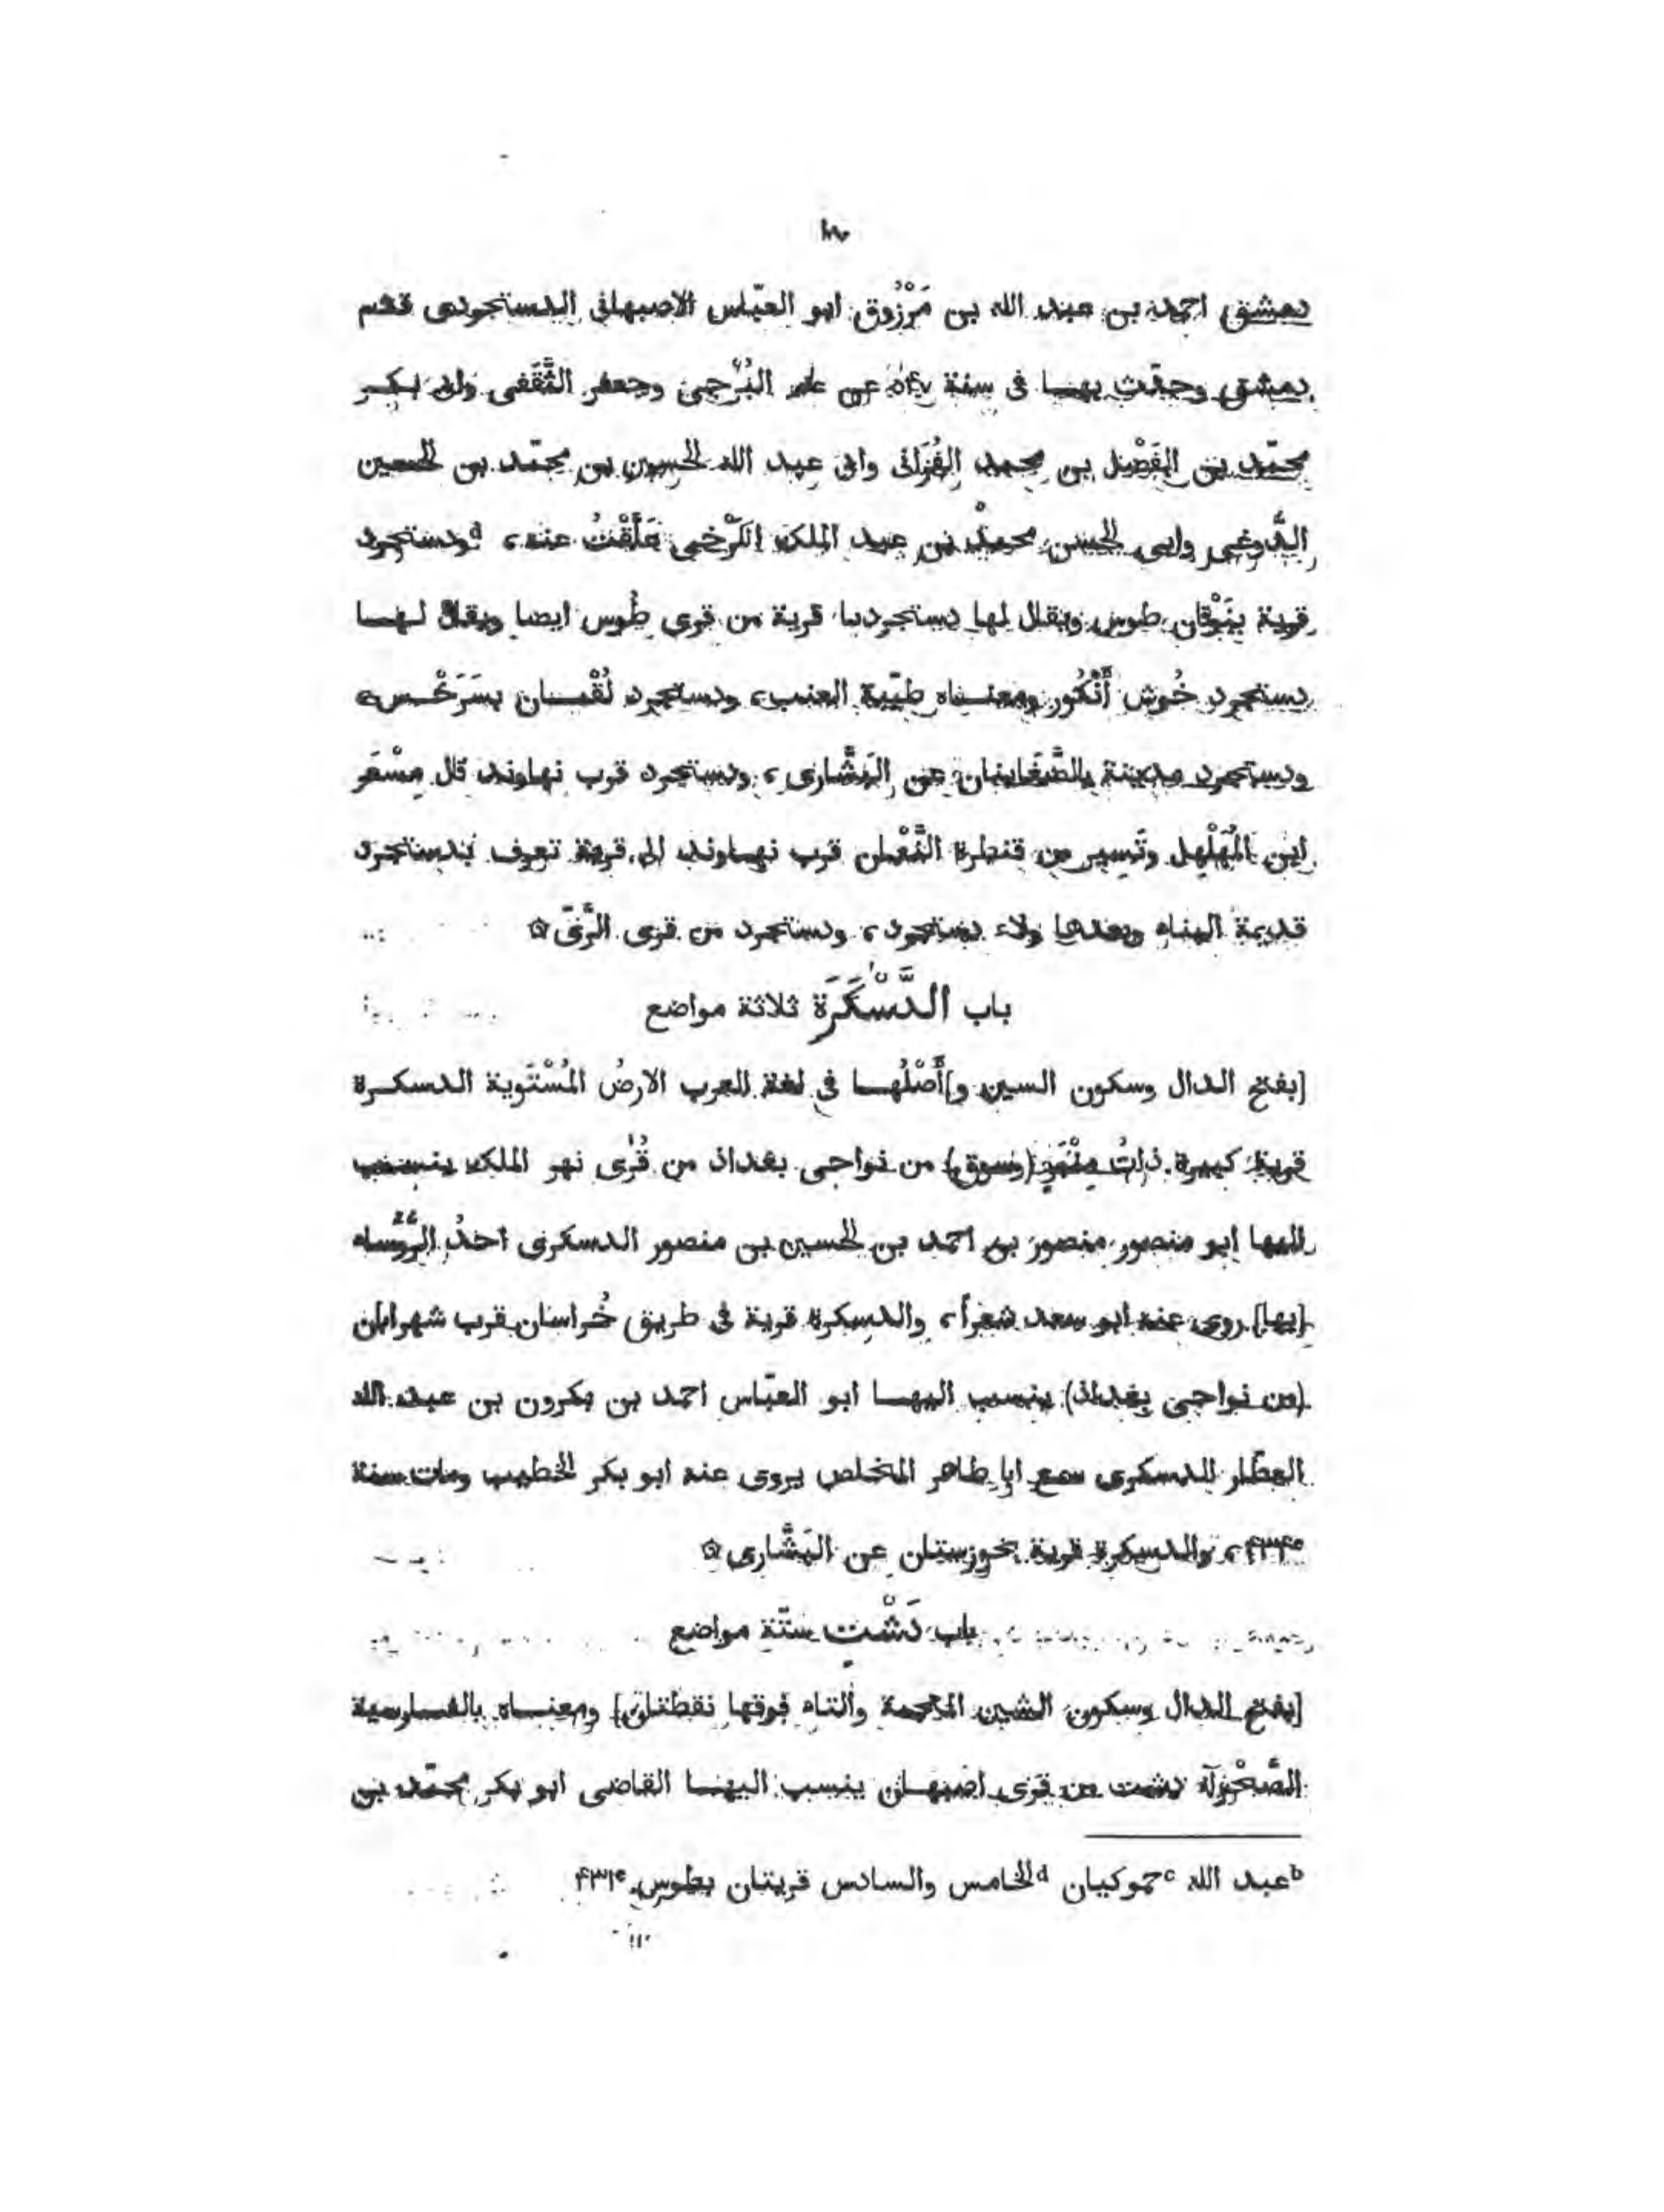 دمشق احمد بن عبد الله بن مَرْزُوق ابو العبّاس الاصبهانى الدستجردى قدم
دمشق وحدّث بها فى سنة عن البُرْجى وجعفر الثَّقَفى وابى بكر
محمّد بن الفَضْل بن محمد وابى عبد الله الحسين بن محمّد بن الحسين
وابى الحسن محمد بن عبد الملك الكَرْخى عَلَّقْتُ عنه، ᵈودستجرد
قرية بنَوْقان طوس ويقال لها دستجرد قرية من قرى طُوس ايضا ويقال لها
دستجرد خُوش أَنْكُور ومعناه طيّبة العنب، ودستجرد لُقْمان بسَرَخْس،
ودستجرد مدينة بالصَّغانيان عن البَشَّارى، ودستجرد قرب نهاوند قال مِسْعَر
ابن المُهَلْهِل وتَسير من قنطرة النُّعْمان قرب نهاوند الى قرية تعرف بدستجرد
قديمة البناء دستجرد، ودستجرد من قرى الرَّىّ ۞
باب الدَّسْكَرَة ثلاثة مواضع
[بفتح الدال وسكون السين و]أَصْلُها فى لغة العرب الارضُ المُسْتَوية الدسكرة
قرية كبيرة ذاتُ مِنْبَرٍ (وسوق) من نواحى بغداد من قُرَى نهر الملك ينسب
اليها ابو منصور منصور بن احمد بن الحسين بن منصور الدسكرى احدُ الرُّؤساء
[بها] روى عنه ابو سعد شعراً، والدسكرة قرية فى طريق خُراسان قرب شهرابان
(من نواحى بغداد) ينسب اليها ابو العبّاس احمد بن بكرون بن عبد الله
العطّار الدسكرى سمع ابا طاهر المخلص يروى عنه ابو بكر الخطيب ومات سنة
۴۳۴ᵉ، والدسكرة قرية بخوزستان عن البَشَّارى ۞
باب دَشْت ستّة مواضع
[بفتح الدال وسكون الشين المعجمة والتاء فوقها نقطتان] ومعناه بالفارسية
الصَّحْرآء دشت من قرى اصبهان ينسب اليها القاضى ابو بكر محمّد بن
ᵇعبد الله ᶜحموكيان ᵈالخامس والسادس قريتان بطوس ᵉ۴۳۱